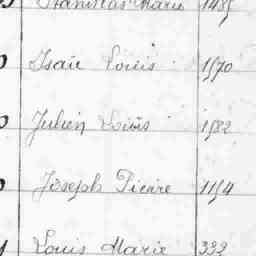 Stanislas Marie 1485
Isaïe Louis 1570
Julien Louis 1582
Joseph Pierre 1154
Louis Marie 333